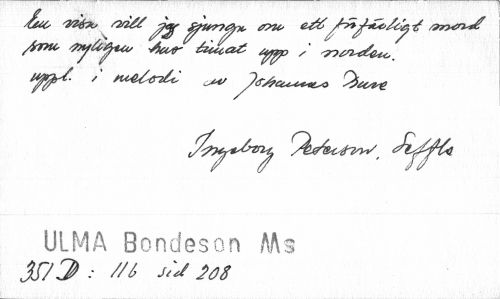 En visa vill jag sjunga om ett förfärligt mord
som nyligen har timat upp i norden.
uppl. i melodi av Johannes Bure
Ingeborg Peterson, Seffle
ULMA Bondeson Ms
351 D : 116 sid 208